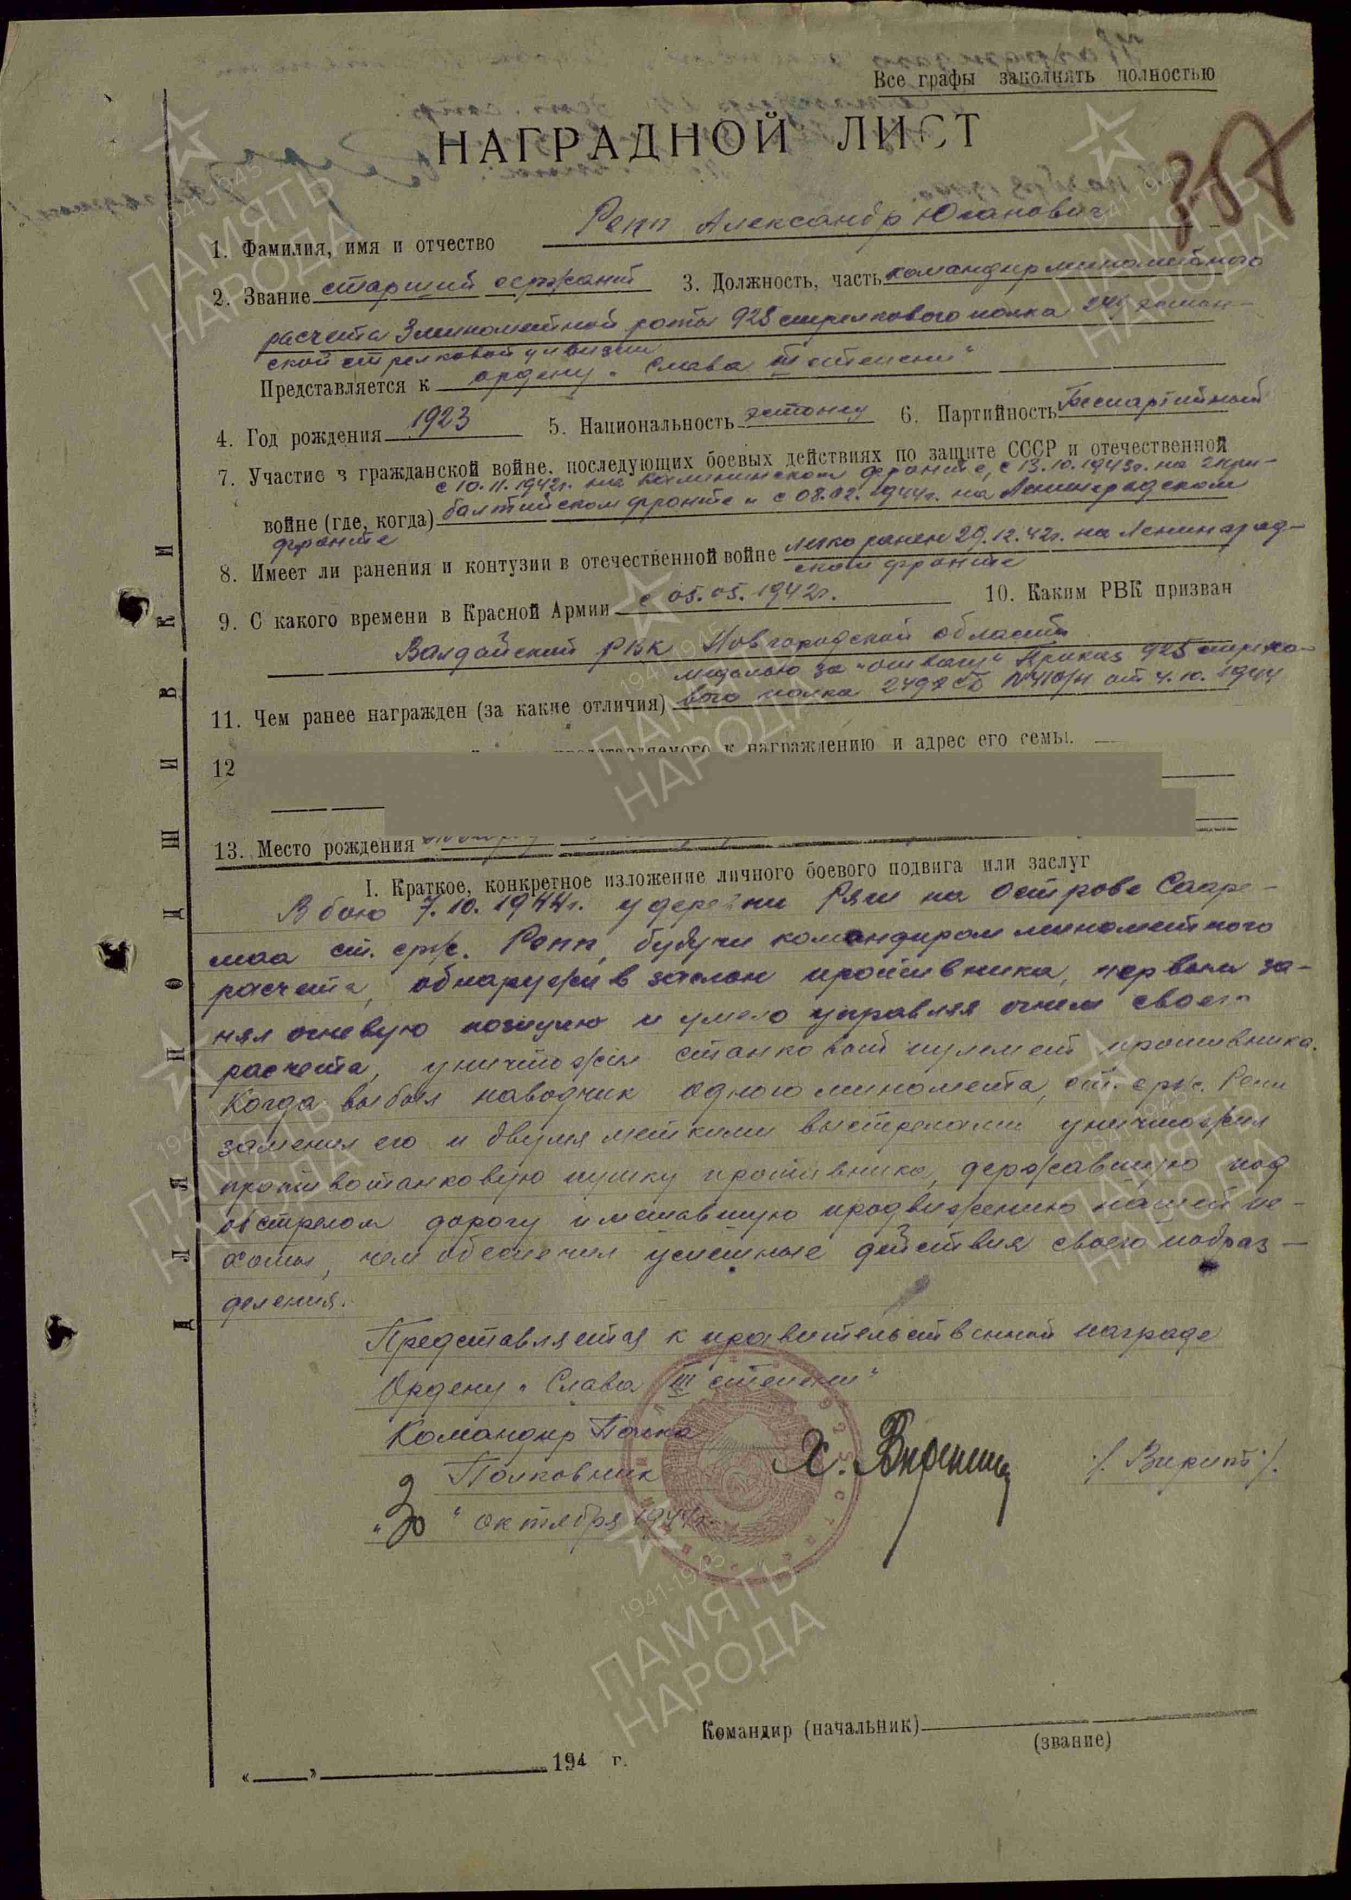 Все графы заполнять полностью
НАГРАДНОЙ ЛИСТ
307
1. Фамилия, имя и отчество Репп Александр Юганович
2. Звание старший сержант 3. Должность, часть командир минометного
расчета 3 минометной роты 925 стрелкового полка 249 эстон-
ской стрелковой дивизии
Представляется к ордену „Слава III степени"
4. Год рождения 1923 5. Национальность эстонец 6. Партийность Беспартийный
7. Участие в гражданской войне, последующих боевых действиях по защите СССР и отечественной
с 10.11.1942г. на Калининском фронте, с 13.10.1943г. на 2 при-
войне (где, когда) балтийском фронте и с 08.02.1944г. на Ленинградском
фронте
8. Имеет ли ранения и контузии в отечественной войне легко ранен 29.12.42г. на Ленинград-
ском фронте
9. С какого времени в Красной Армии с 05.05.1942г. 10. Каким РВК призван
Валдайский РВК Новгородской области
медалью за „отвагу" Приказ 925 стрелко-
11. Чем ранее награжден (за какие отличия) вого полка 249 от 4.10.1944
12 представляемого к награждению и адрес его семьи.
13. Место рождения
I. Краткое, конкретное изложение личного боевого подвига или заслуг
В бою 7.10.1944г. у деревни Ряги на острове Сааре-
маа ст. серж. Репп, будучи командиром минометного
расчета, обнаружив заслон противника, первым за-
нял огневую позицию и умело управляя огнем своего
расчета, уничтожил станковый пулемет противника.
Когда выбыл наводчик одного миномета, ст. серж. Репп
заменил его и двумя меткими выстрелами уничтожил
противотанковую пушку противника, державшую под
обстрелом дорогу и мешавшую продвижению нашей пе-
хоты, чем обеспечил успешные действия своего подраз-
деления.
Представляется к правительственной награде
Ордену „Слава III степени"
Командир Полка
Полковник Х. Вирит /Вирит/.
„20" октября 1944г.
Командир (начальник)
(звание)
« » 194 г.
ДЛЯ ПОДШИВКИ
1941-1945
ПАМЯТЬ
НАРОДА
1941-1945
ПАМЯТЬ
НАРОДА
1941-1945
ПАМЯТЬ
НАРОДА
1941-1945
ПАМЯТЬ
НАРОДА
1941-1945
ПАМЯТЬ
НАРОДА
1941-1945
ПАМЯТЬ
НАРОДА